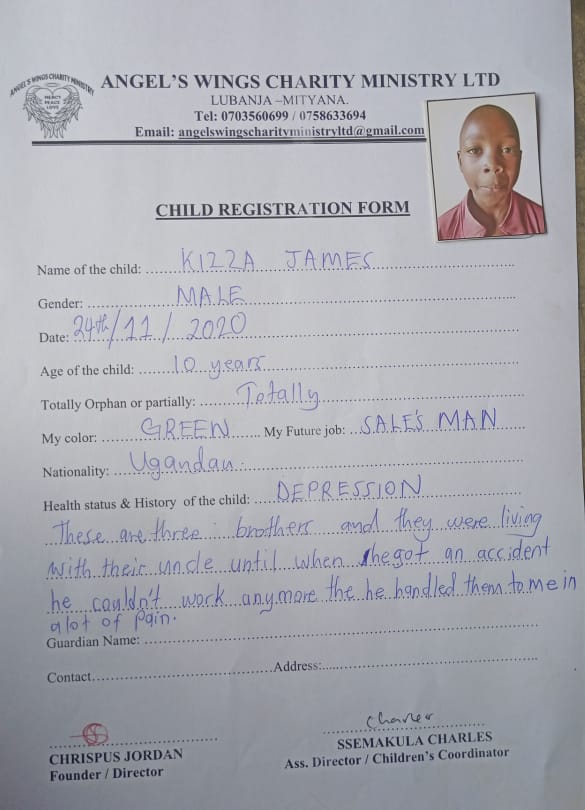 ANGEL'S WINGS CHARITY MINISTRY
MERCY
PEACE
LOVE
ANGEL'S WINGS CHARITY MINISTRY LTD
LUBANJA –MITYANA.
Tel: 0703560699 / 0758633694
Email: angelswingscharityministryltd@gmail.com
CHILD REGISTRATION FORM
Name of the child: KIZZA JAMES
Gender: MALE
Date: 24th/11/2020
Age of the child: 10 years
Totally Orphan or partially: Totally
My color: GREEN My Future job: SALE'S MAN
Nationality: Ugandan.
Health status & History of the child: DEPRESSION
These are three brothers and they were living
with their uncle until when he got an accident
he couldn't work anymore the he handled them to me in
alot of pain.
Guardian Name:
Contact Address:
CHRISPUS JORDAN
Founder / Director
Charles
SSEMAKULA CHARLES
Ass. Director / Children's Coordinator